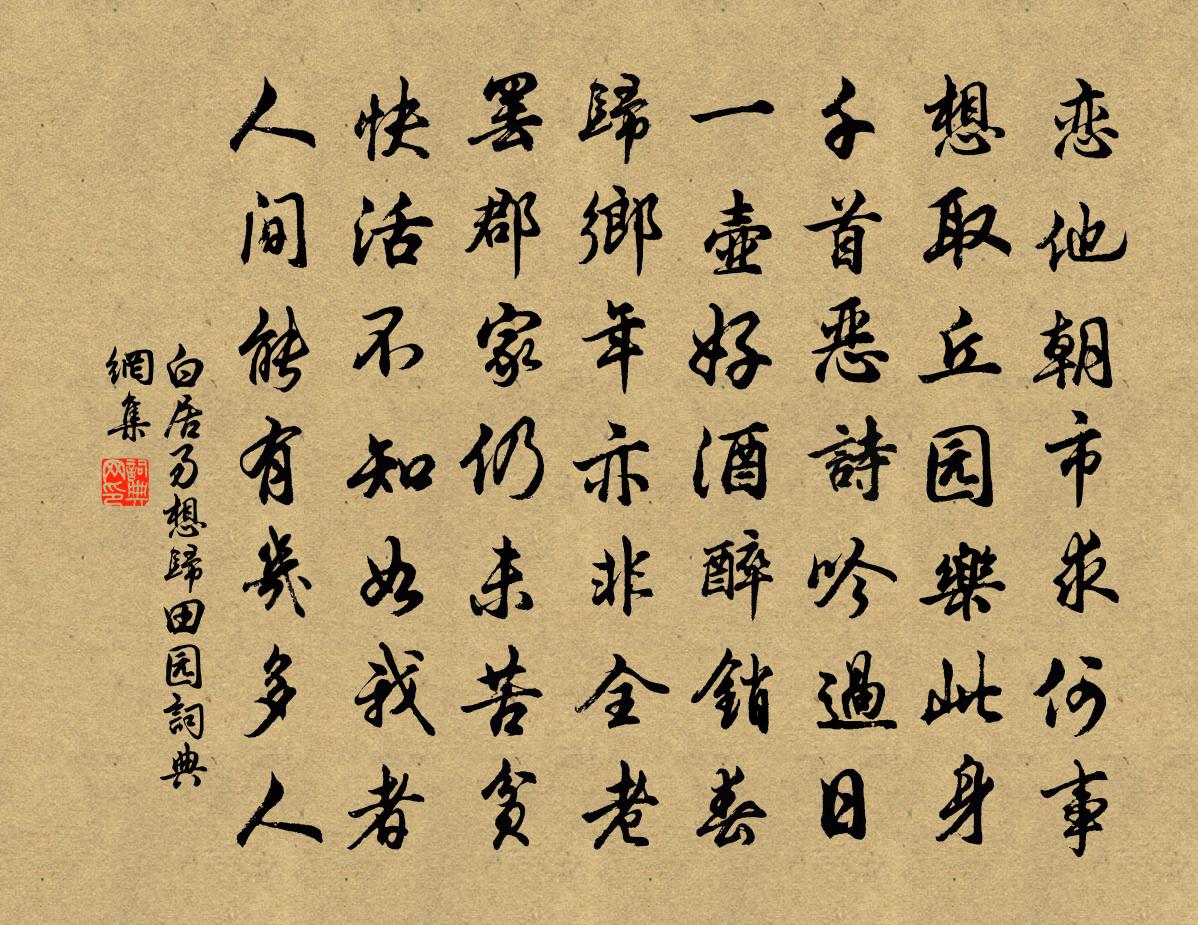 恋他朝市求何事
想取丘园樂此身
千首恶詩吟過日
一壺好酒醉銷春
歸鄉年亦非全老
罢郡家仍未苦貧
快活不知如我者
人间能有幾多人
白居易想歸田园詞典
網集
詞典
网印